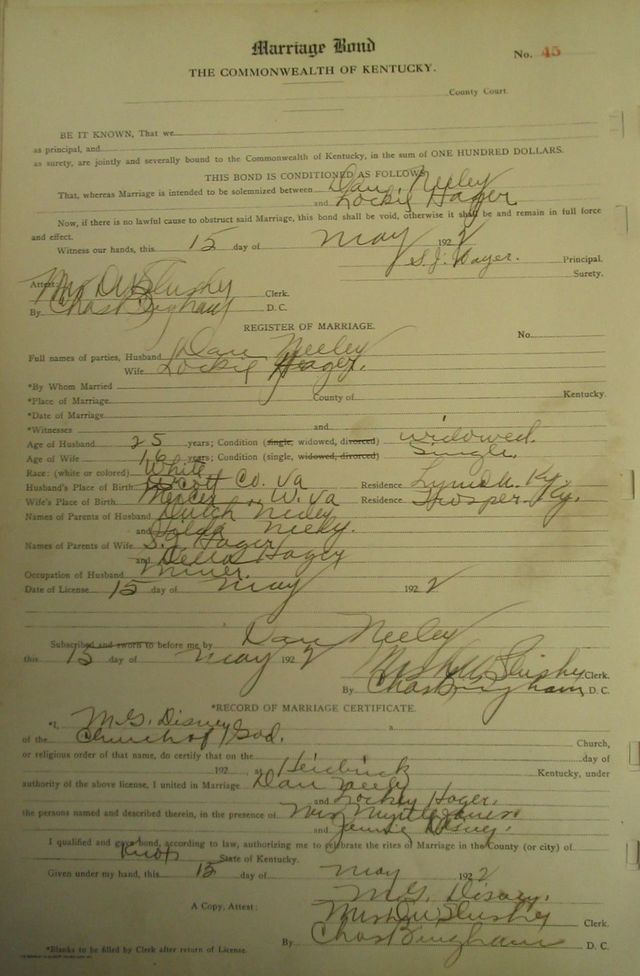 Marriage Bond
No. 45
THE COMMONWEALTH OF KENTUCKY.
County Court.
BE IT KNOWN, That we
as principal, and
as surety, are jointly and severally bound to the Commonwealth of Kentucky, in the sum of ONE HUNDRED DOLLARS.
THIS BOND IS CONDITIONED AS FOLLOWS
That, whereas Marriage is intended to be solemnized between Dan Neeley
and Lockie Hager
Now, if there is no lawful cause to obstruct said Marriage, this bond shall be void, otherwise it shall be and remain in full force
and effect.
Witness our hands, this 15 day of May 1922
S.J. Hager. Principal.
Surety.
Attest Mrs D W Slusky Clerk.
By Chas Bingham D. C.
REGISTER OF MARRIAGE.
No.
Full names of parties, Husband Dan Neeley
Wife Lockie Hager.
*By Whom Married
*Place of Marriage County of Kentucky.
*Date of Marriage
*Witnesses and
Age of Husband 25 years; Condition (single, widowed, divorced) widowed.
Age of Wife 16 years; Condition (single, widowed, divorced) single.
Race: (white or colored) White
Husband's Place of Birth Scott Co. Va Residence Ky.
Wife's Place of Birth Mercer W. Va Residence Trosper Ky.
Names of Parents of Husband Dutch Neeley
and Neeley.
Names of Parents of Wife S.J. Hager
and Della Hager
Occupation of Husband Miner.
Date of License 15 day of May 1922
Subscribed and sworn to before me by Dan Neeley
this 15 day of May 1922
Mrs D W Slusky Clerk.
By Chas Bingham D. C.
*RECORD OF MARRIAGE CERTIFICATE.
*I, M.G. Disney a
of the Church of God. Church,
or religious order of that name, do certify that on the day of
192 at Heidrick Kentucky, under
authority of the above license, I united in Marriage Dan Neely
and Lockey Hager.
the persons named and described therein, in the presence of Mrs Myrtle
and Jennie Disney.
I qualified and gave bond, according to law, authorizing me to celebrate the rites of Marriage in the County (or city) of
Knox State of Kentucky.
Given under my hand, this 15 day of May 1922
M.G. Disney.
A Copy, Attest: Mrs D W Slusky Clerk.
By Chas Bingham D. C.
*Blanks to be filled by Clerk after return of License.